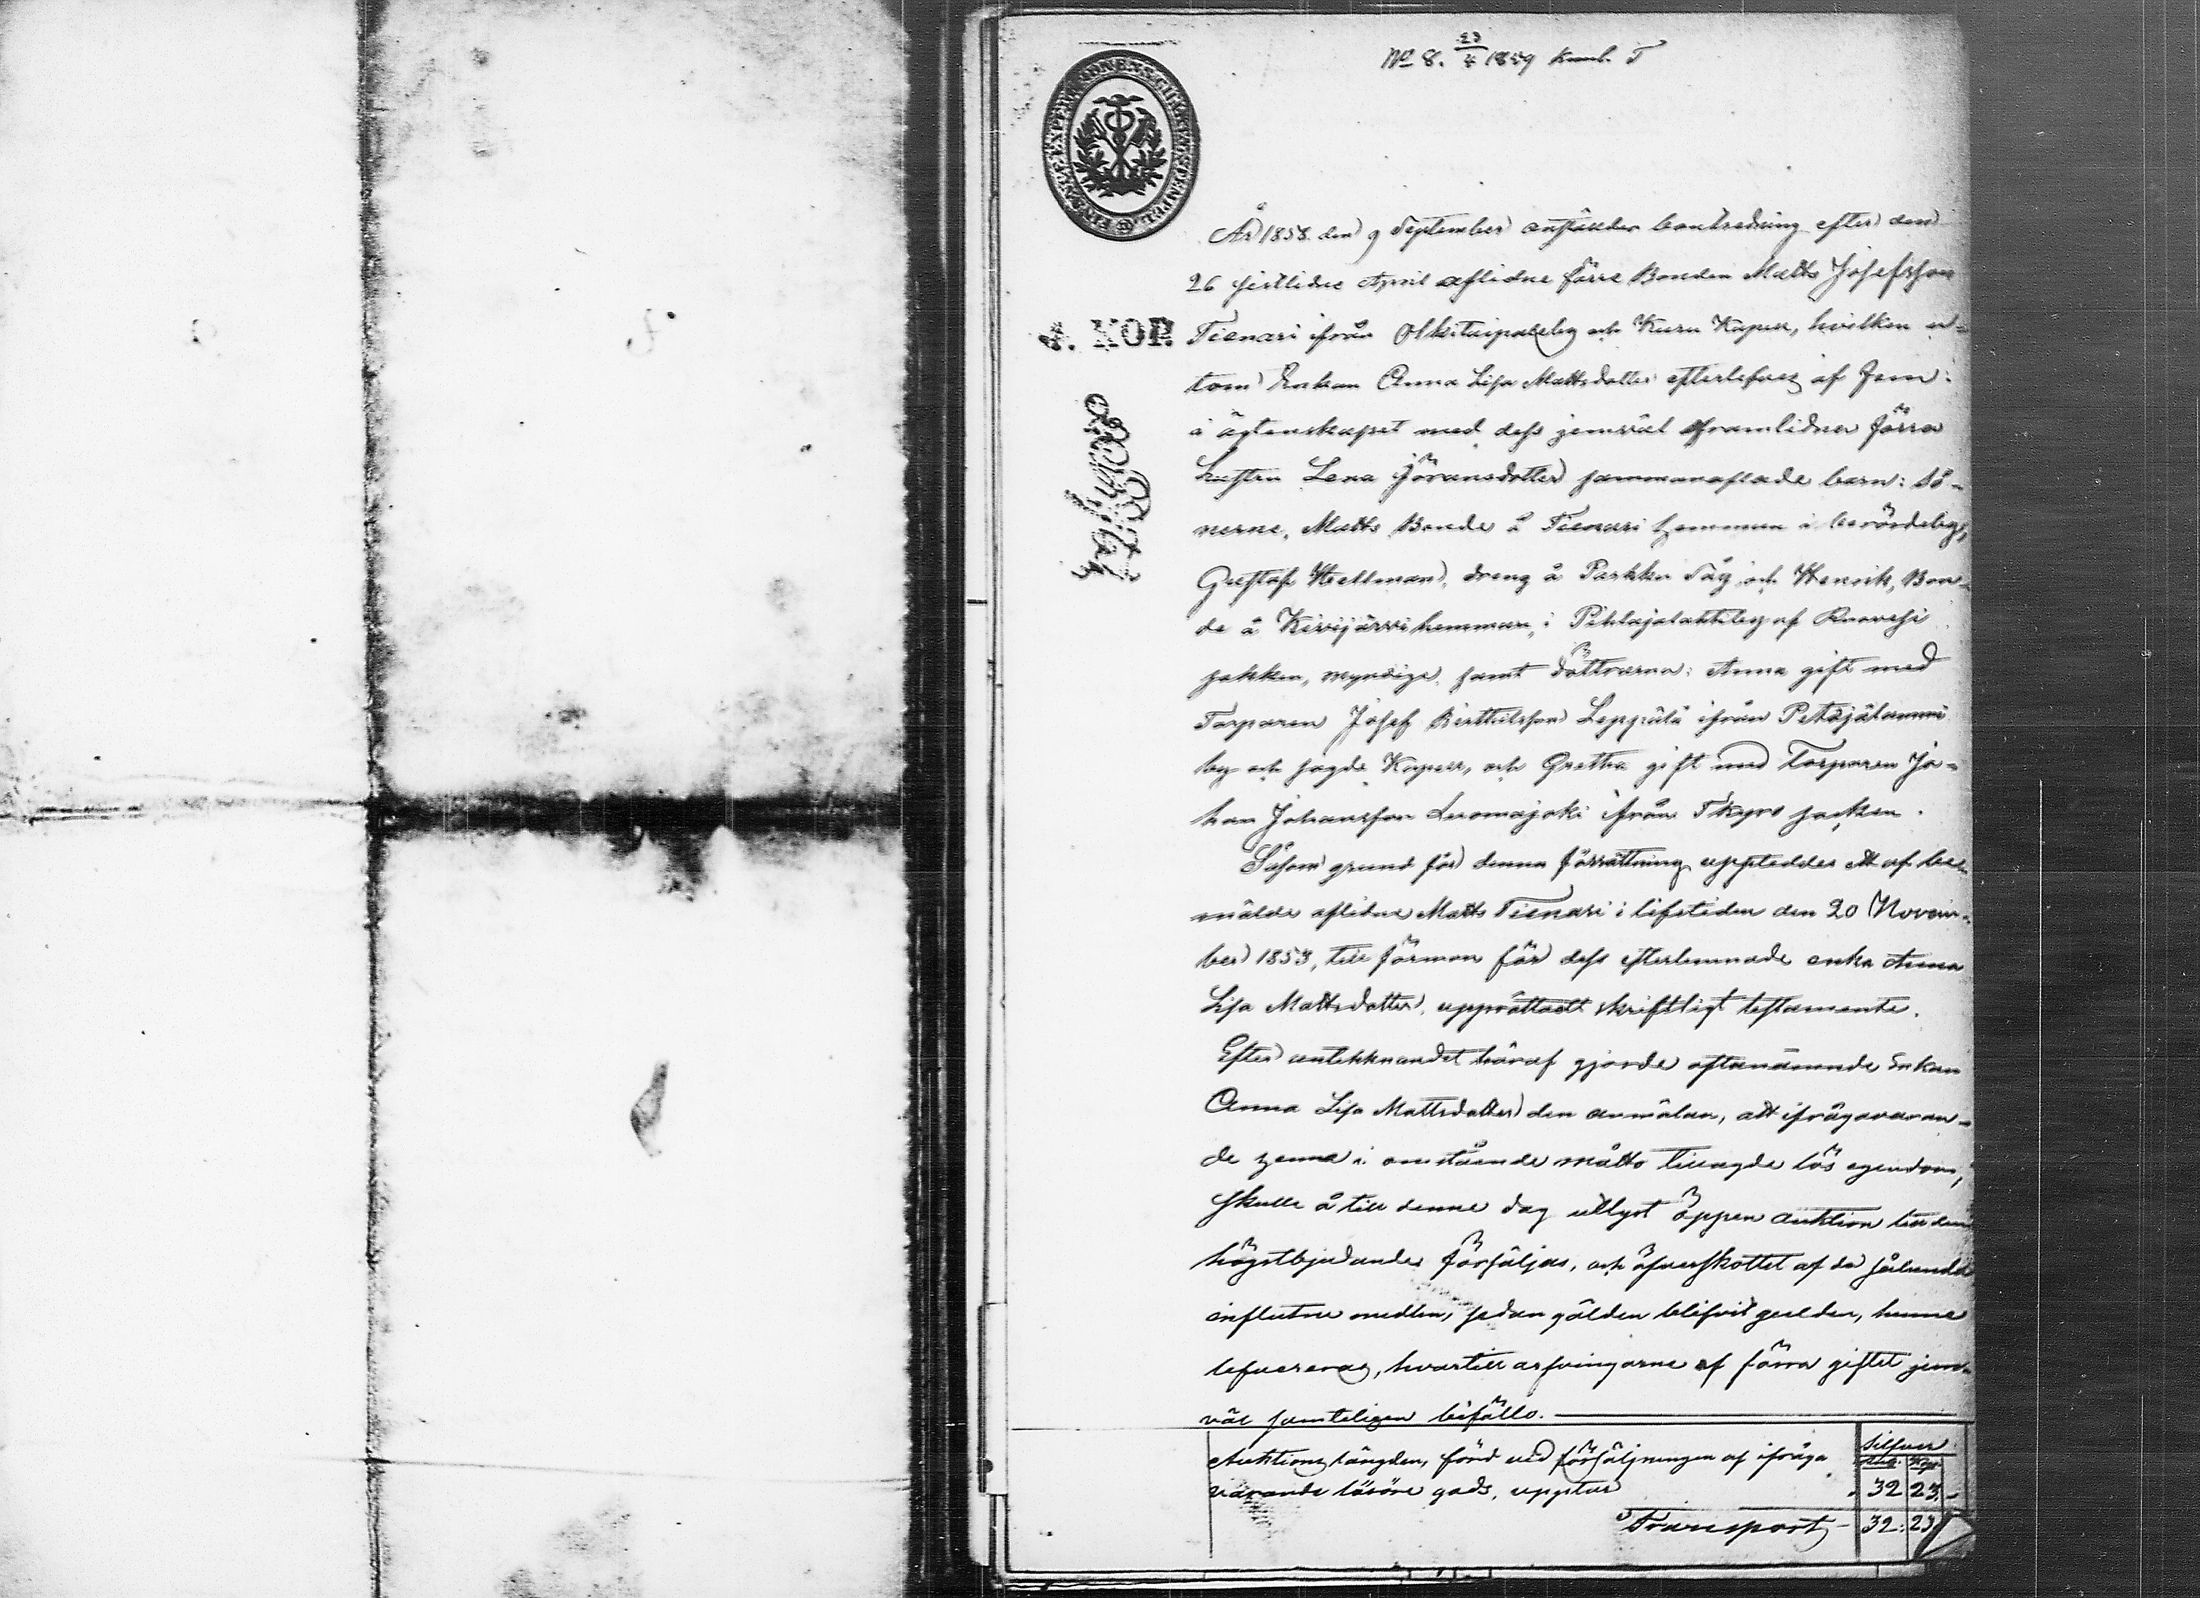 No 8. 23/4 1859
År 1858 den 9 September anställdes boutredning efter den
26 sistlidne April aflidne förre Bonden Matts Josefsson
4. KOP. Tienari ifrån by och Kuru Kapell, hvilken u-
tom Enkan Anna Lisa Mattsdotter efterlefves af sine
i ägtenskapet med dess jemväl framlidna förra
hustru Lena Jöransdotter sammanaflade barn: Sö-
nerne, Matts Bonde å Tienari hemman i berördeby,
Gustaf Hellman, dreng å Parkku Såg och Henrik, Bon-
de å Kivijärvi hemman, i Pihlajalahti by af Ruovesi
sokken, myndige, samt döttrarna: Anna gift med
Torparen Josef Berthilsson Leppälä ifrån Petäjälammi
by och sagde Kapell, och Gretha gift med Torparen Jo-
han Johansson Luomajoki ifrån Tkyro socken.
Såsom grund för denna förrättning uppteddes ett af be-
mälde aflidne Matts Tienari i lifstiden den 20 Novem-
ber 1853, till förmon för dess efterlemnade enka Anna
Lisa Mattsdotter, upprättadt skriftligt testamente.
Efter antekknandet häraf gjorde oftanämnde Enkan
Anna Lisa Mattsdotter den anmälan, att ifrågavaran-
de henne i måtto tillagde lös egendom,
skulle å till denne dag utlyst öppen auktion till den
högstbjudande försäljas, och öfverskottet af de sålunda
influtne medlen, sedan gälden blifvit gulden, henne
lefvereras, hvartill arfvingarne af förra giftet jem-
väl samteligen biföllo.
Silfver
Rub. Kop.
Auktions längden, förd vid försäljningen af ifråga
varande lösöre gods, upptar 32 23.
Transport 32: 23.